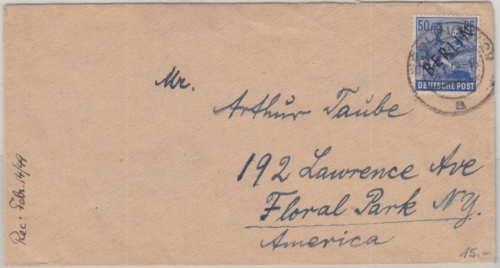 50
BERLIN
DEUTSCHE POST
Mr.
Arthur Taube
192 Lawrence Ave
Floral Park N.Y.
America
Rec: Febr. 14/49
15.-